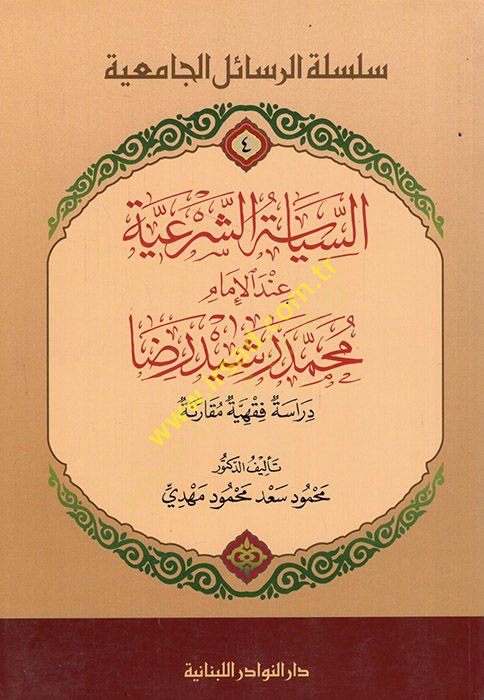 سلسلة الرسائل الجامعية
٤
السِّيَاسَةُ الشَّرْعِيَّة
عِنْدَ الإِمَامِ
مُحَمَّد رَشِيد رِضَا
دِرَاسَةٌ فِقْهِيَّةٌ مُقَارَنَةٌ
تَأليفُ الدكتُور
مَحْمُود سَعْد مَحْمُود مَهْدِي
دار النوادر اللبنانية